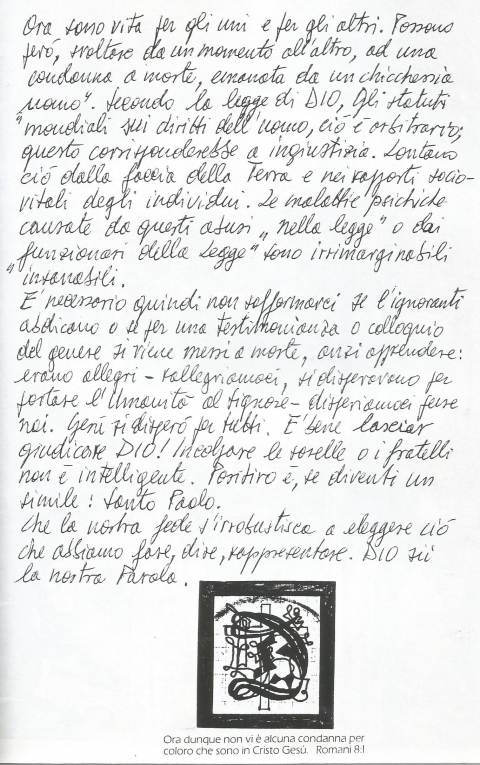 Ora sono vita per gli uni e per gli altri. Possono
però, svoltare da un momento all'altro, ad una
condanna a morte, emanata da un chicchessia
uomo". Secondo la legge di DIO, Gli statuti
"mondiali sui diritti dell'uomo, ciò è arbitrario;
questo corrisponderebbe a ingiustizia. Lontano
ciò dalla faccia della Terra e nei rapporti socio-
vitali degli individui. Le malattie psichiche
causate da questi abusi „nella legge" o dai
funzionari della Legge" sono irrimarginabili
"insanabili.
E' necessario quindi non soffermarci se l'ignoranti
abdicano o se per una testimonianza o colloquio
del genere si viene messi a morte, anzi apprendere:
erano allegri - rallegriamoci, si disperavano per
portare l'Umanità al Signore - disperiamoci pure
noi. Gesù si disperò per tutti. E' bene lasciar
giudicare DIO! Incolpare le sorelle o i fratelli
non è intelligente. Positivo è, se diventi un
simile: Santo Paolo.
Che la nostra fede s'irrobustisca a eleggere ciò
che abbiamo fare, dire, rappresentare. DIO sii
la nostra Parola.
Ora dunque non vi è alcuna condanna per
coloro che sono in Cristo Gesù. Romani 8:1